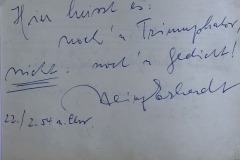 Hier heisst es:
noch 'n Triumphator,
nicht: noch 'n Gedicht!
Heinz Erhardt
22./2.54 n. Chr.